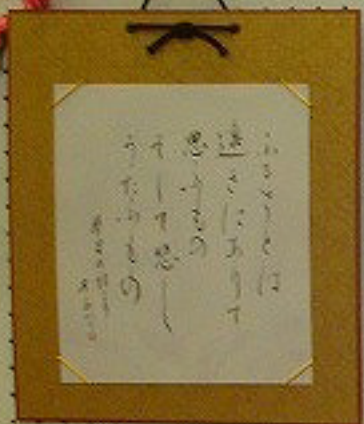 ふるさとは
遠きにありて
思ふもの
そして悲し
うたふもの